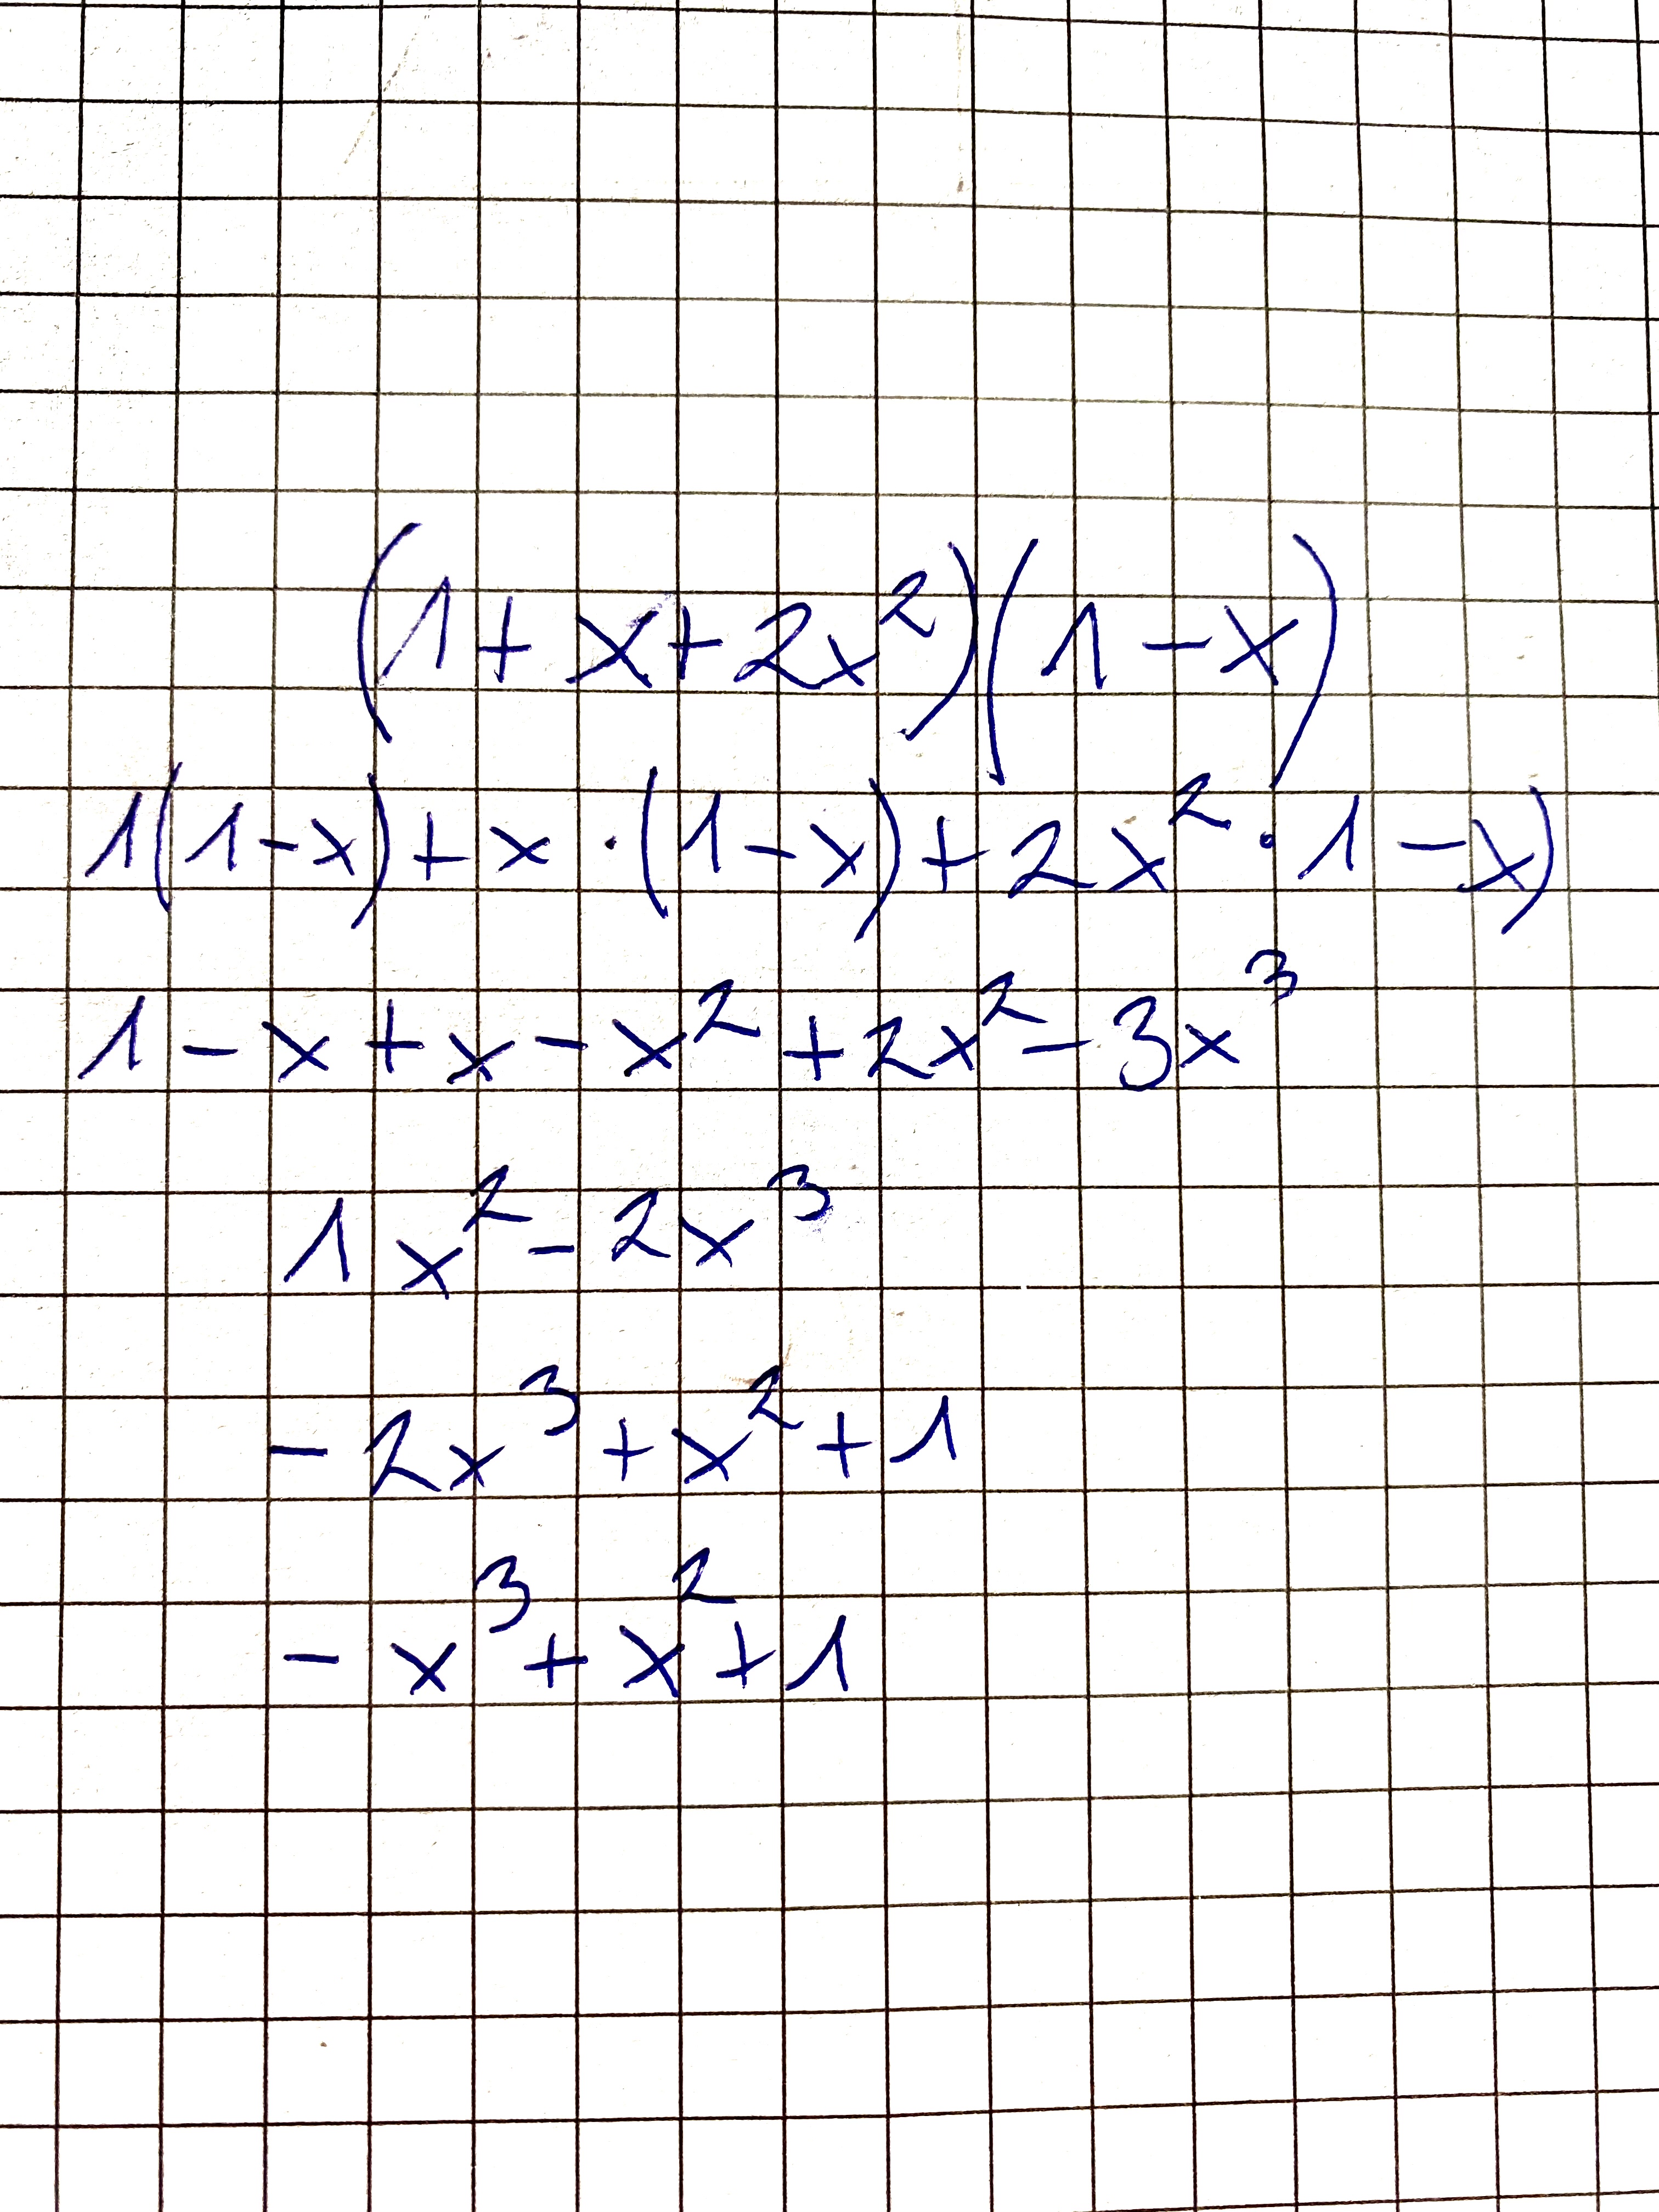 (1+x+2x²)(1-x)
1(1-x)+x·(1-x)+2x²·1-x)
1-x+x-x²+2x²-3x³
1x²-2x³
-2x³+x²+1
-x³+x²+1